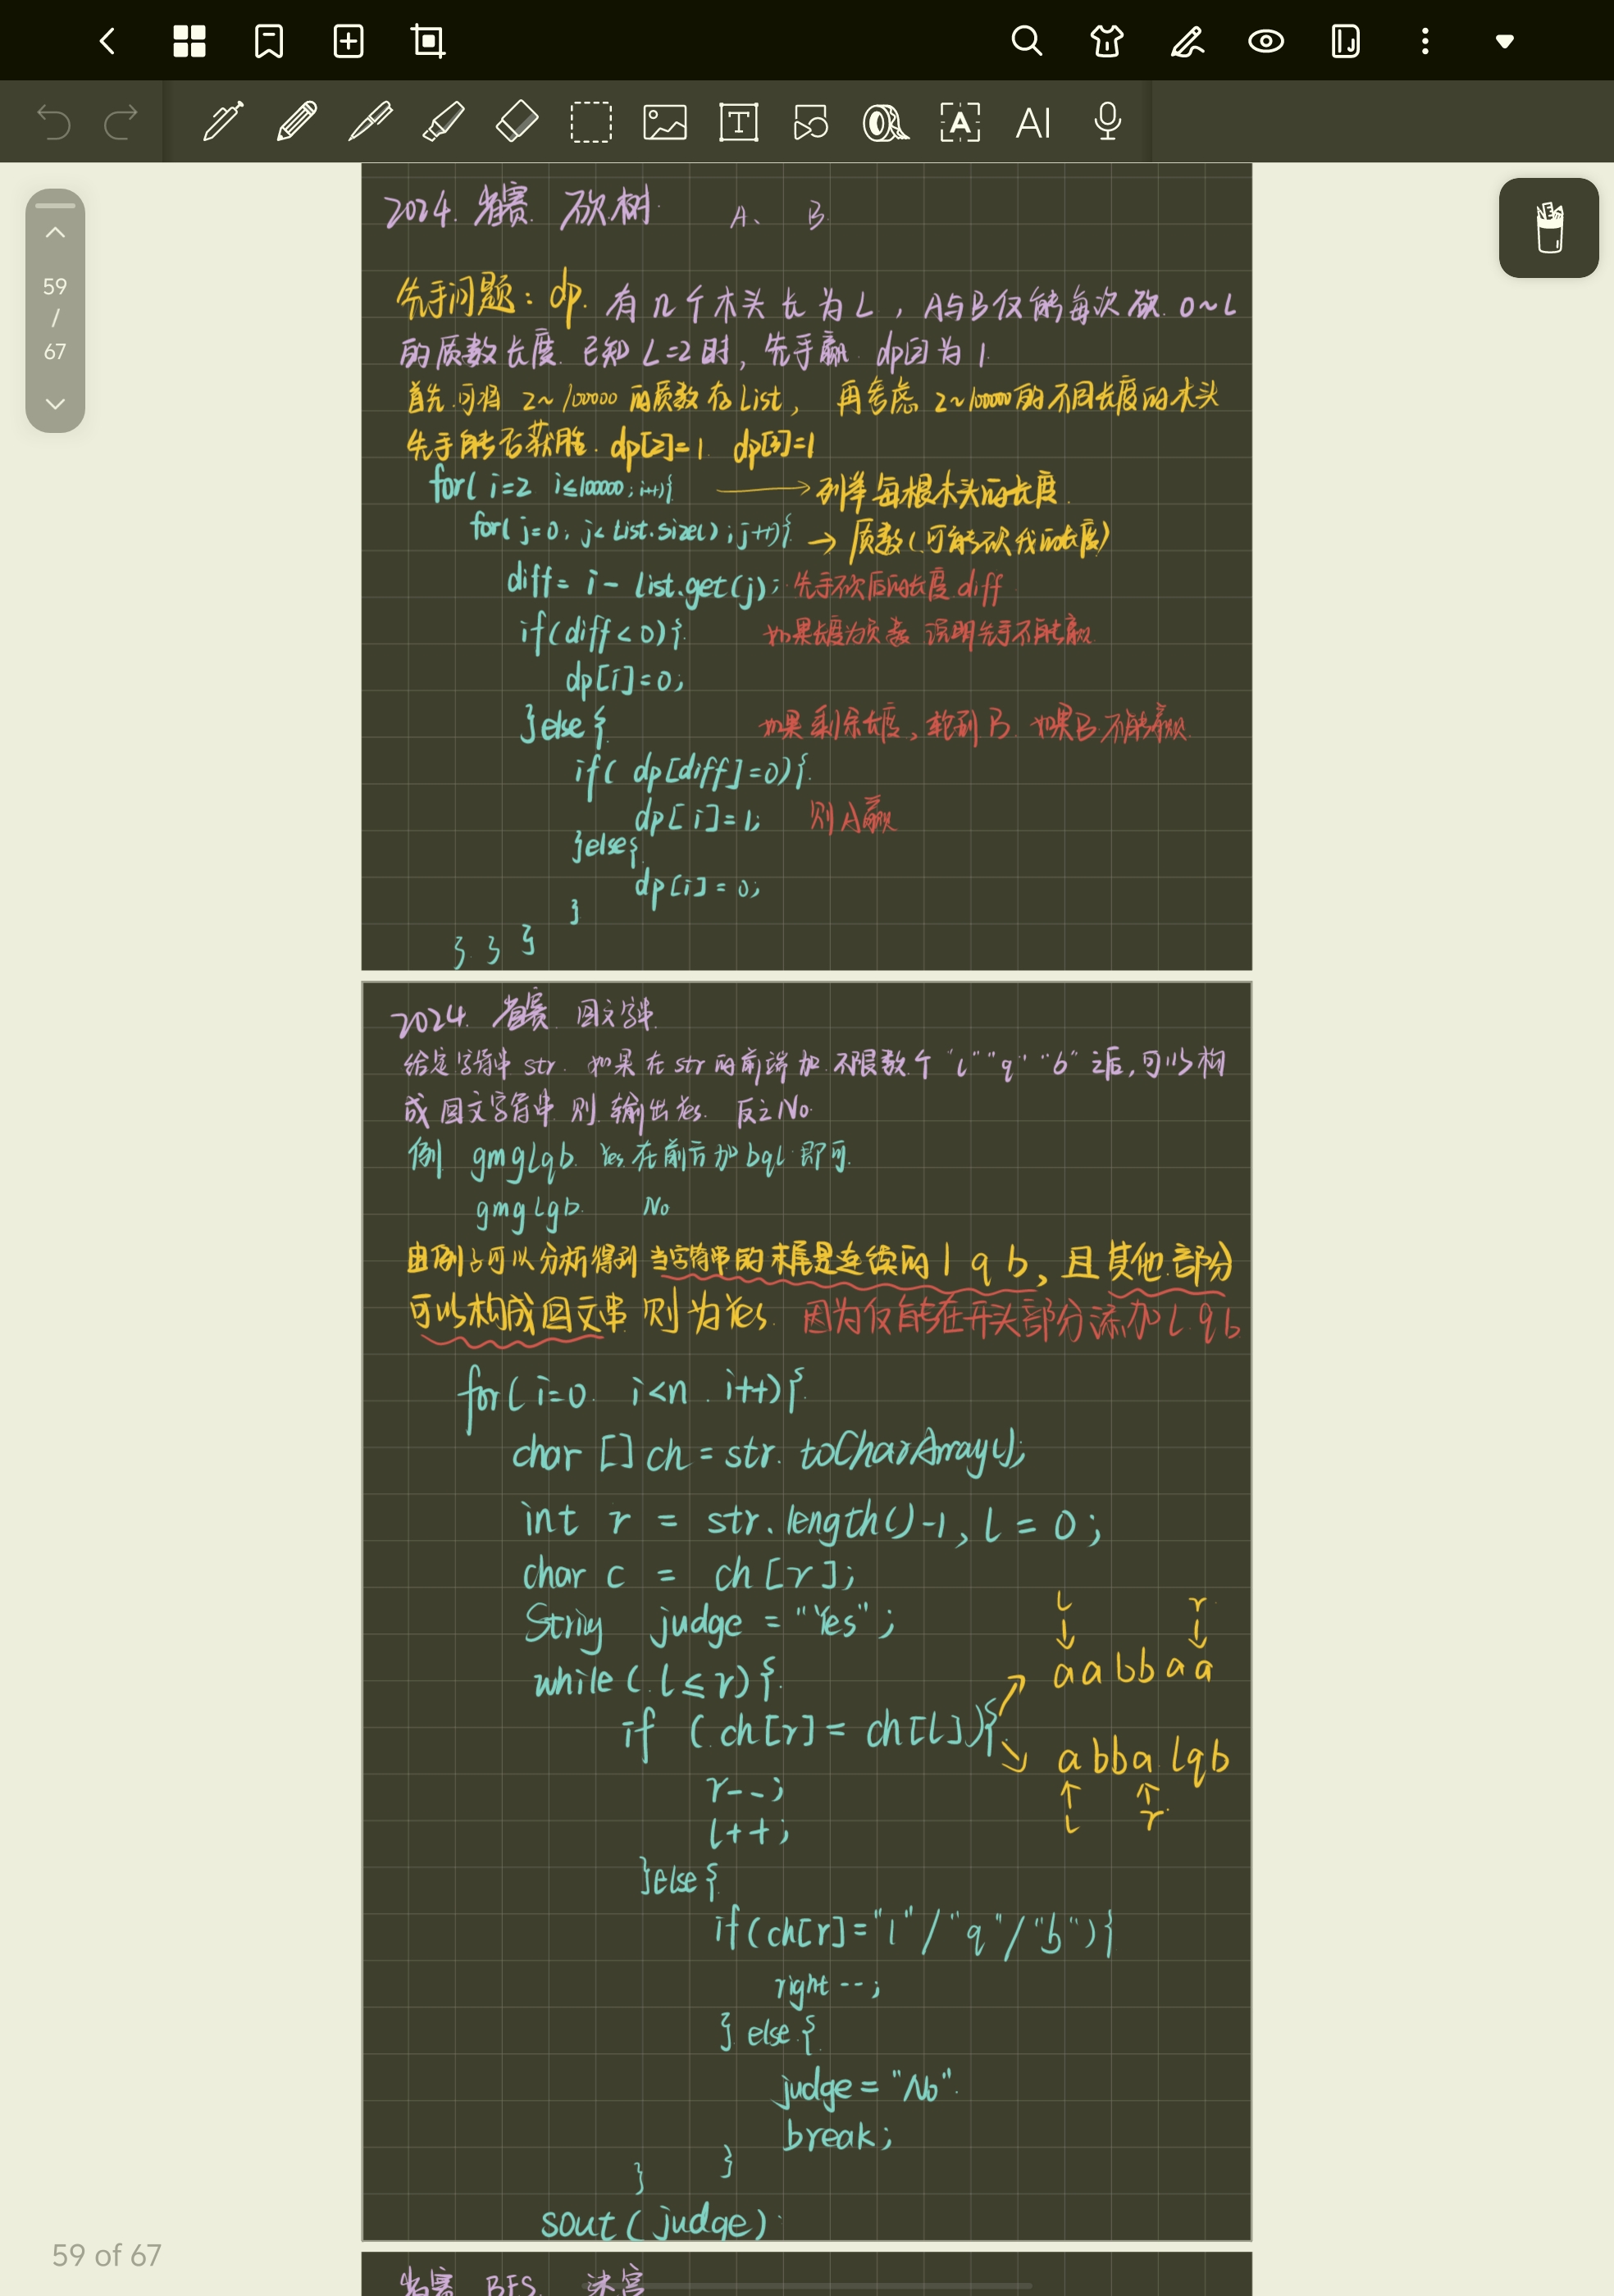 59
/
67
2024. 省赛 砍树 A、 B
先手问题：dp. 有 n 个木头 长为 L ，A与B仅能每次砍 0~L
的质数长度. 已知 L=2 时，先手赢 dp[]为 1
首先 可将 2~100000 的质数存List， 再考虑 2~100000的不同长度的木头
先手能否获胜. dp[2]=1 dp[3]=1
for( i=2 i≤100000 ; i++){ → 列举每根木头的长度.
for( j=0; j< List.size() ; j++){ → 质数(可能砍伐的长度)
diff = i - list.get(j); 先手砍后的长度 diff
if(diff < 0){ 如果长度为负数 说明先手不能赢
dp[i]=0;
}else{ 如果剩余长度，轮到B 如果B不能赢
if( dp[diff]=0){
dp[i]=1; 则A赢
}else{
dp[i]=0;
}
} } }
2024. 省赛 回文字串
给定字符串 str. 如果在 str 的前端加 不限数个 "l" "q" "b" 之后，可以构
成回文字符串 则 输出Yes. 反之No.
例 gmglqb. Yes 在前方加 bql 即可.
gmglgb. No
由例子可以分析得到 当字符串的末尾是连续的 l q b，且其他部分
可以构成回文串 则为Yes. 因为仅能在开头部分添加 l q b
for( i=0. i<n . i++){
char [] ch = str. toCharArray();
int r = str.length()-1, l = 0;
char c = ch[r];
String judge = "Yes";
l r
while( l ≤ r){ aabbaa
if (ch[r] = ch[l]){ abbalqb
r--;
l r
l++;
}else{
if(ch[r]="l"/"q"/"b"){
right--;
} else{
judge = "No".
break;
}
}
sout(judge)
59 of 67
省赛 BFS. 迷宫